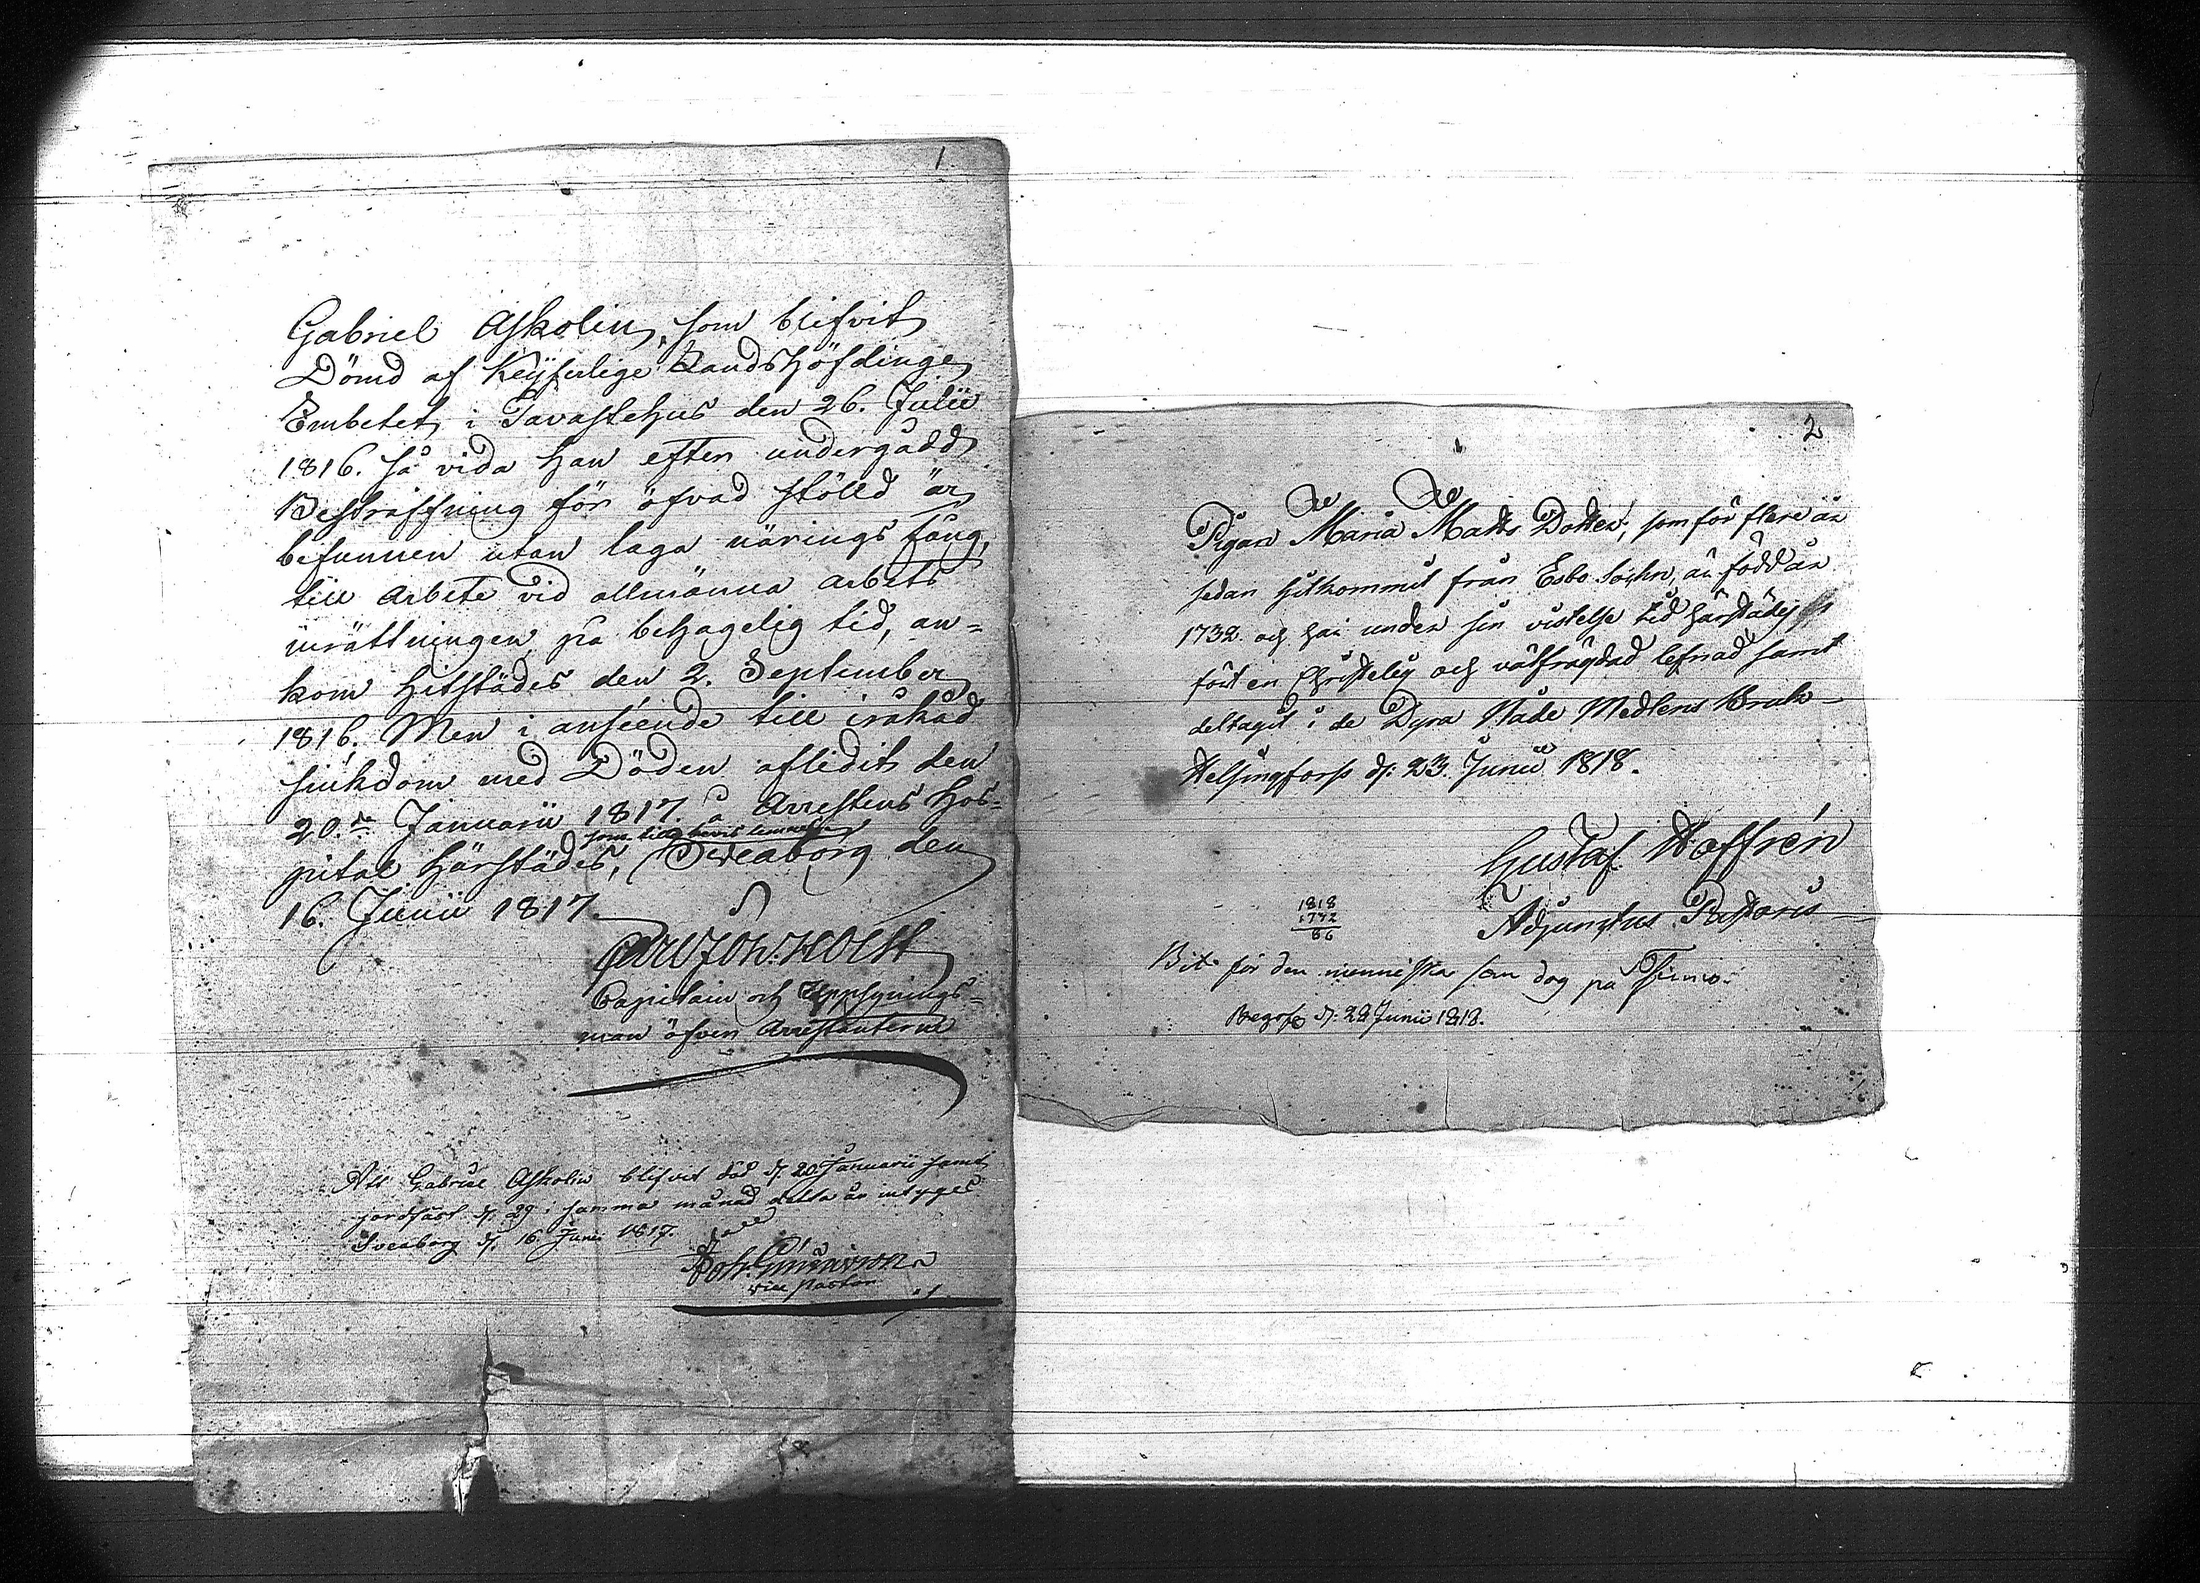 1.
Gabriel Askolin, som blifvit
Dömd af Keyserlige Landshöfdinge
Embetet i Tavastehus den 26. Julii
1816. så vida han efter undergådd
Bestraffning för öfvad stöld är
befunnen utan laga närings fång,
till Arbete vid allmänna arbets
inrättningen på behagelig tid, an=
kom hitstädes den 2. September
1816. Men i anséende till iråkad
siukdom med Döden aflidit den
20:de Januarii 1817. å Arrestens Hos=
som till bevis lemnas
pital härstädes, Sveaborg den
16. Junii 1817.
Carl Joh: Holst
Capitain och Uppsynings=
man öfver Arrestanterne
Att Gabriel Askolin blifvit död d. 20 Januarii samt
jordfäst d. 29 i samma månad detta år intyges
Sveaborg d. 16 Junii 1817.
Joh.
vice Pastor
2
Pigan Maria Matts Dotter, som för flere år
sedan hitkommit från Esbo Sockn, är född år
1732 och har under sin vistelse tid härstädes
fört en Christelig och välfrägdad lefnad samt
deltagit i de Dyra Nåde Medlens Bruk
Helsingfors d. 23. Junii 1818.
Gustaf Hoffrén
Adjunctus Pastoris
1818
1732
86
Bet. för den menniska som dog på
Begrofs d. 28 Junii 1818.